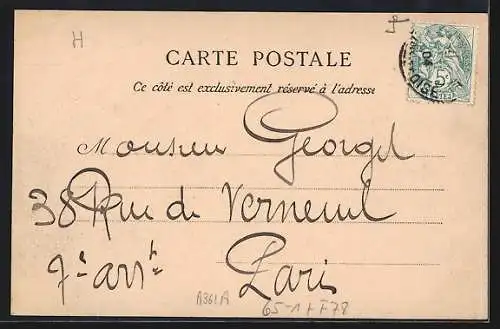 H
CARTE POSTALE
Ce côté est exclusivement réservé à l'adresse
5c
OISE
Monsieur Georget
38 Rue de Verneuil
7e arrt
Paris
A361A
65-1 + F78